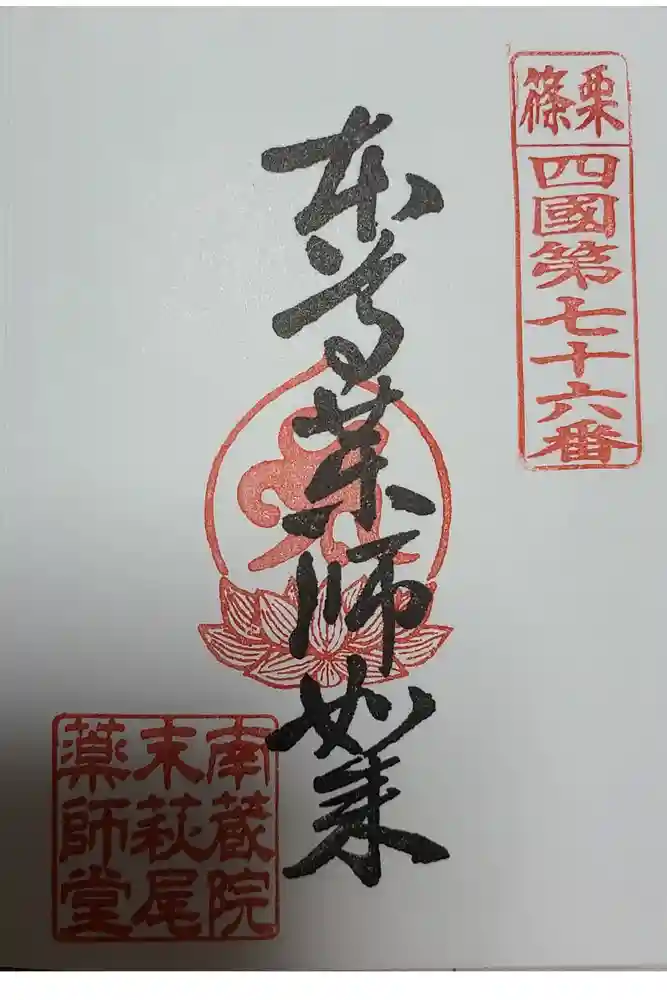 篠栗
四國第七十六番
本尊薬師如来
南蔵院
末萩尾
薬師堂